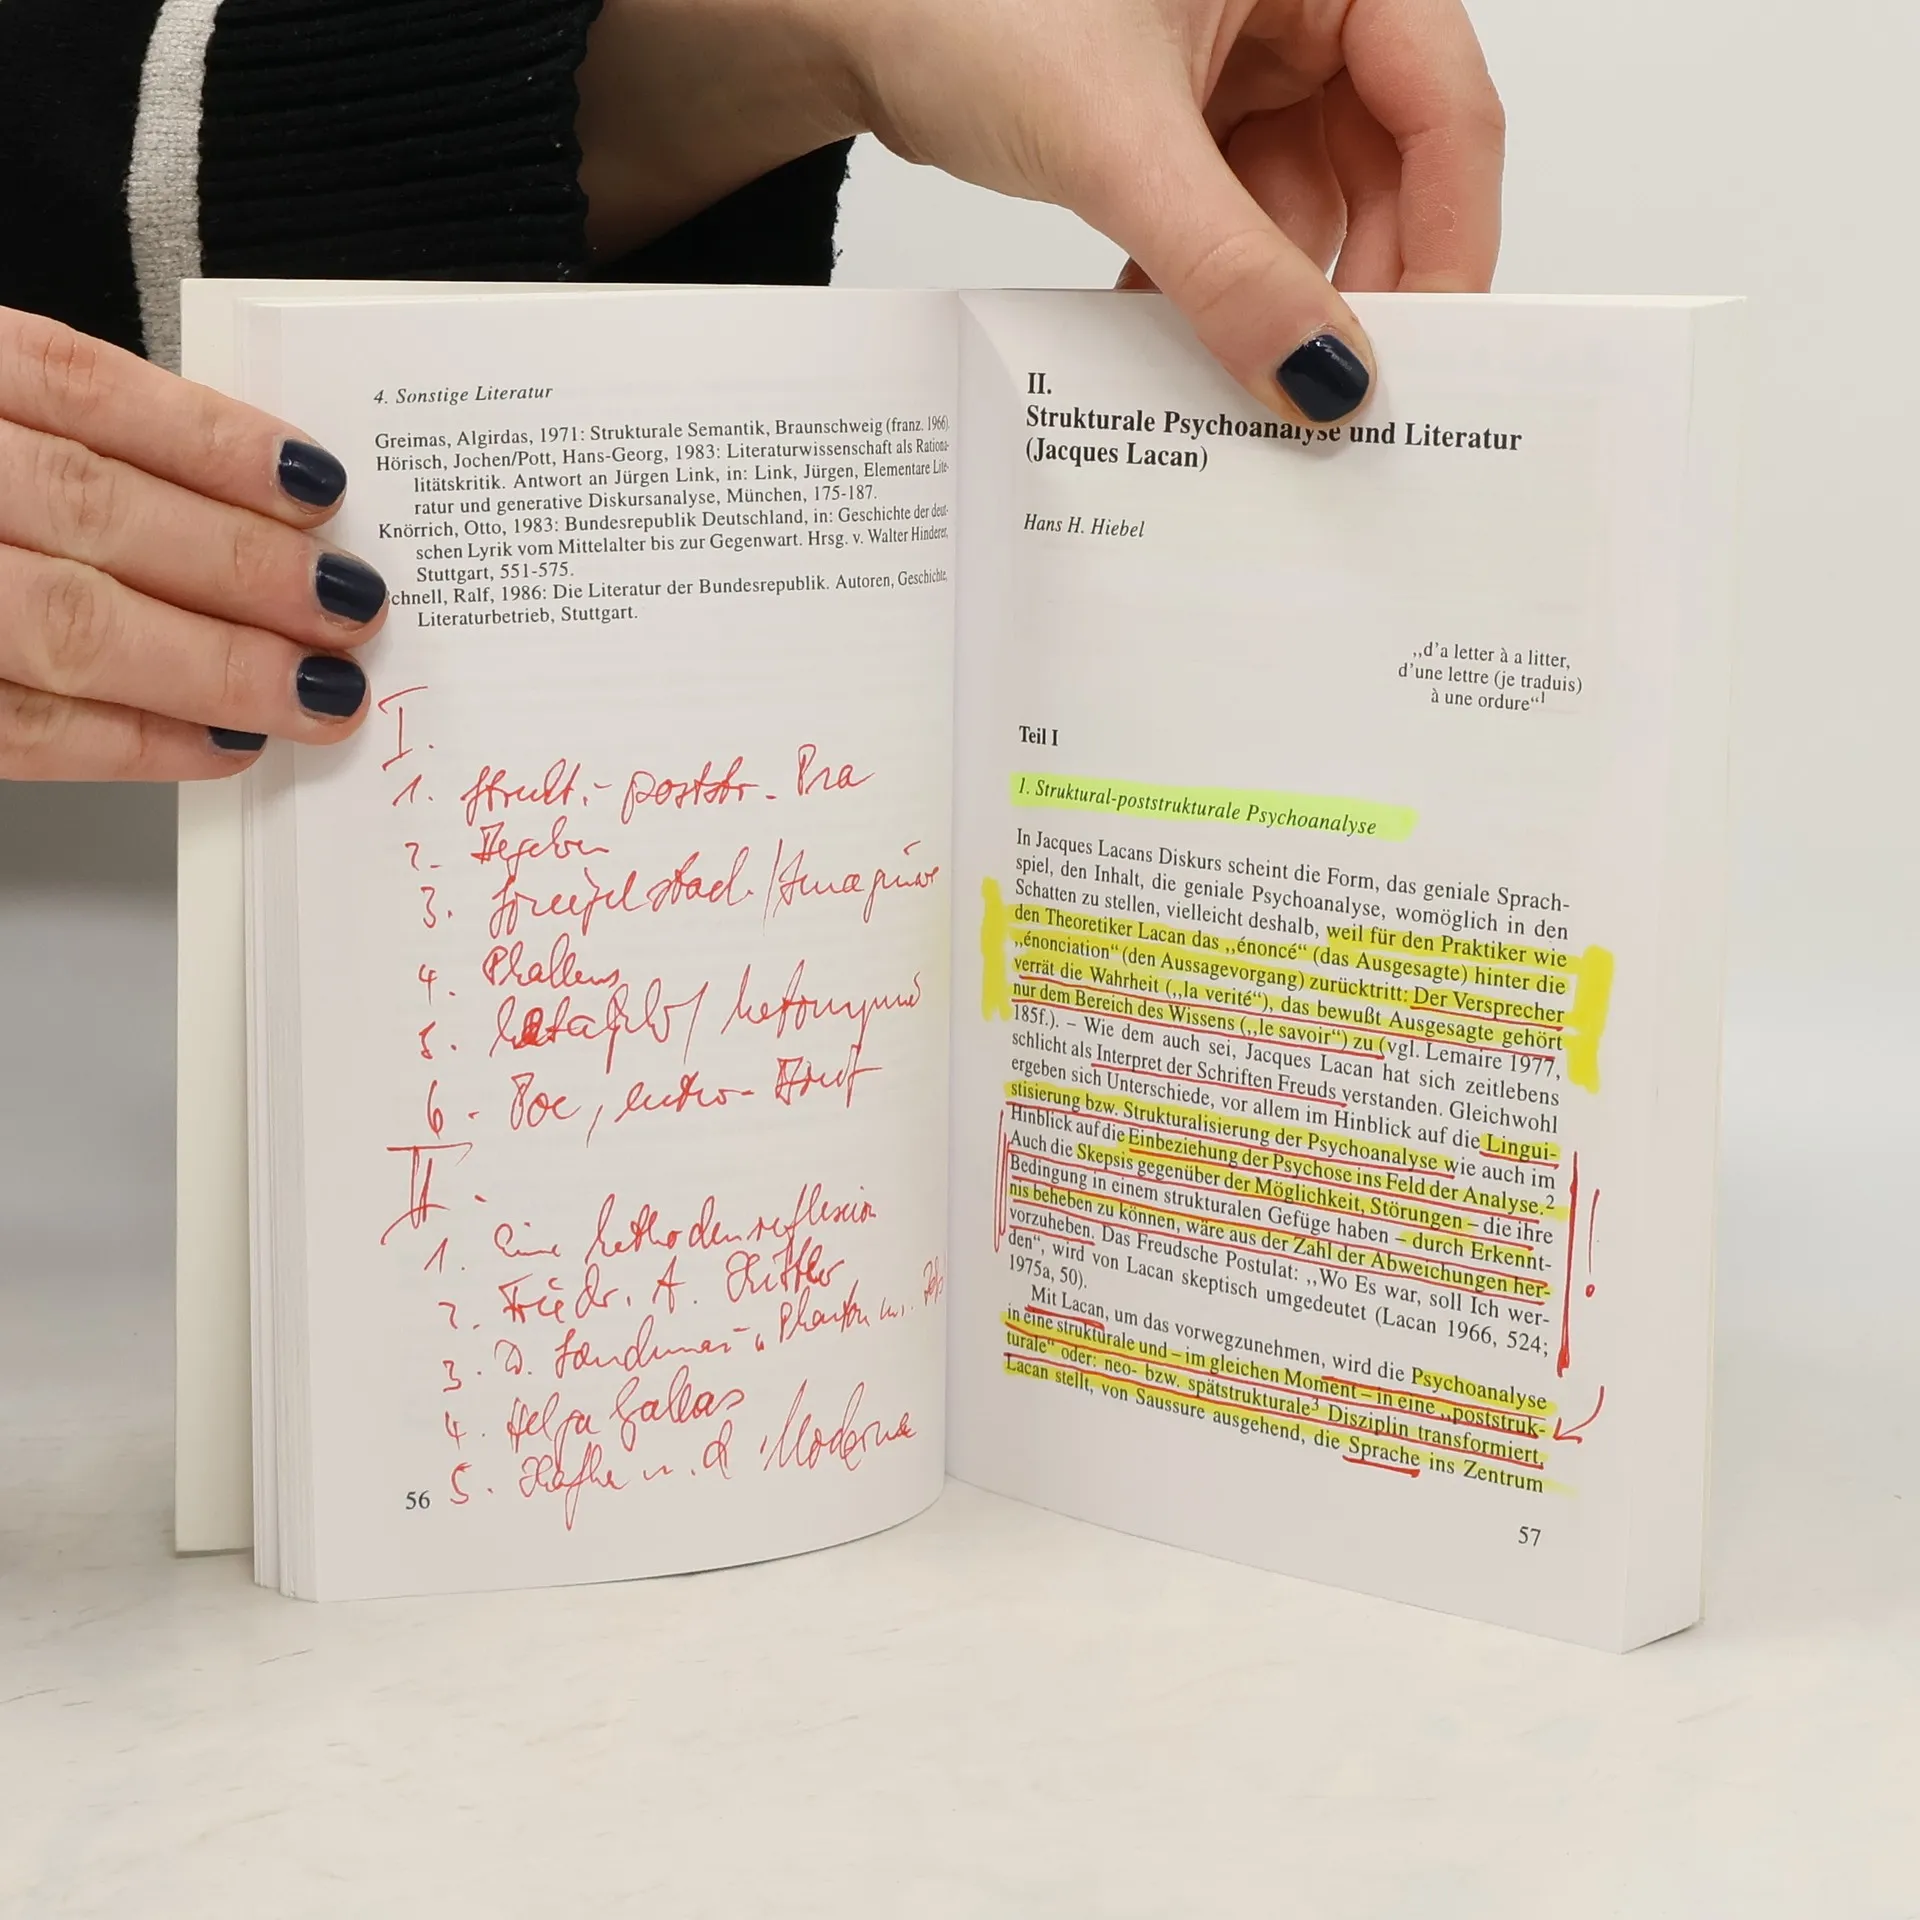 4. Sonstige Literatur
Greimas, Algirdas, 1971: Strukturale Semantik, Braunschweig (franz. 1966).
Hörisch, Jochen/Pott, Hans-Georg, 1983: Literaturwissenschaft als Rationa-
litätskritik. Antwort an Jürgen Link, in: Link, Jürgen, Elementare Lite-
ratur und generative Diskursanalyse, München, 175-187.
Knörrich, Otto, 1983: Bundesrepublik Deutschland, in: Geschichte der deut-
schen Lyrik vom Mittelalter bis zur Gegenwart. Hrsg. v. Walter Hinderer,
Stuttgart, 551-575.
chnell, Ralf, 1986: Die Literatur der Bundesrepublik. Autoren, Geschichte,
Literaturbetrieb, Stuttgart.
I.
1. Strukt.- poststr.
2.
3.
4. Phallus
5.
6. Poe,
II.
1. Eine Methodenreflexion
2. Friedr. A. Kittler
3.
4. Helga Gallas
5. Kafka u. d. Moderne
56
II.
Strukturale Psychoanalyse und Literatur
(Jacques Lacan)
Hans H. Hiebel
„d’a letter à a litter,
d’une lettre (je traduis)
à une ordure“1
Teil I
1. Struktural-poststrukturale Psychoanalyse
In Jacques Lacans Diskurs scheint die Form, das geniale Sprach-
spiel, den Inhalt, die geniale Psychoanalyse, womöglich in den
Schatten zu stellen, vielleicht deshalb, weil für den Praktiker wie
den Theoretiker Lacan das „énoncé“ (das Ausgesagte) hinter die
„énonciation“ (den Aussagevorgang) zurücktritt: Der Versprecher
verrät die Wahrheit („la verité“), das bewußt Ausgesagte gehört
nur dem Bereich des Wissens („le savoir“) zu (vgl. Lemaire 1977,
185f.). – Wie dem auch sei, Jacques Lacan hat sich zeitlebens
schlicht als Interpret der Schriften Freuds verstanden. Gleichwohl
ergeben sich Unterschiede, vor allem im Hinblick auf die Lingui-
stisierung bzw. Strukturalisierung der Psychoanalyse wie auch im
Hinblick auf die Einbeziehung der Psychose ins Feld der Analyse.2
Auch die Skepsis gegenüber der Möglichkeit, Störungen – die ihre
Bedingung in einem strukturalen Gefüge haben – durch Erkennt-
nis beheben zu können, wäre aus der Zahl der Abweichungen her-
vorzuheben. Das Freudsche Postulat: „Wo Es war, soll Ich wer-
den“, wird von Lacan skeptisch umgedeutet (Lacan 1966, 524;
1975a, 50).
Mit Lacan, um das vorwegzunehmen, wird die Psychoanalyse
in eine strukturale und – im gleichen Moment – in eine „poststruk-
turale“ oder: neo- bzw. spätstrukturale3 Disziplin transformiert.
Lacan stellt, von Saussure ausgehend, die Sprache ins Zentrum
57